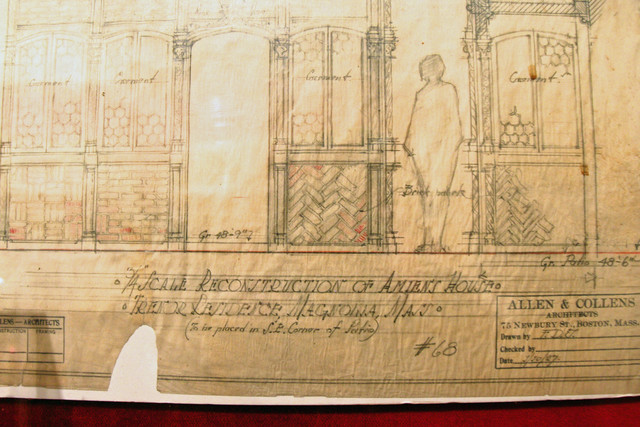 Casement
Casement
Casement
Casement
Brick work
Gr. 48'-9"
Gr. Patio 48'-6"
¾ Scale Reconstruction of Amient House
Trevor Residence, Magnolia, Mass
(To be placed in S.E. Corner of Patio)
#68
ALLEN & COLLENS
ARCHITECTS
75 NEWBURY ST., BOSTON, MASS.
Drawn by
Checked by
Date
LENS — ARCHITECTS